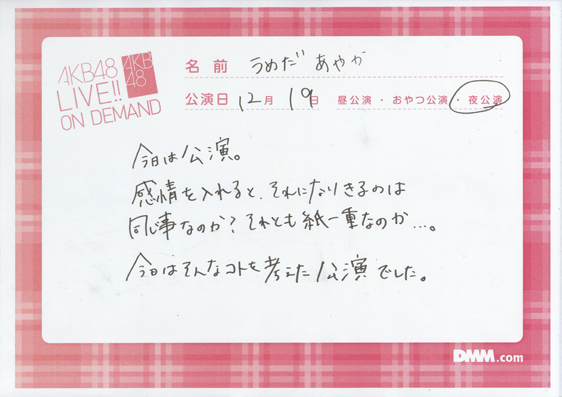 AKB48
LIVE!!
ON DEMAND
AKB
48
名前 うめだ あやか
公演日 12月 19日 昼公演・おやつ公演・夜公演
今日は公演。
感情を入れると、それになりきるのは
同じ事なのか?それとも紙一重なのか…。
今日はそんなコトを考えた公演でした。
DMM.com